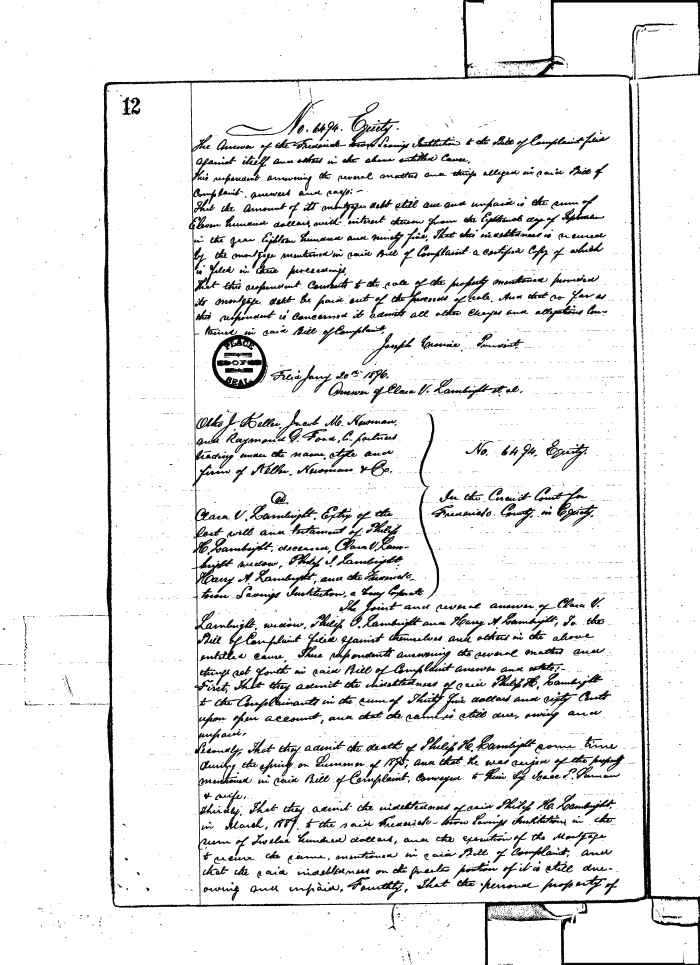 12
No. 6494. Equity.
The Answer of the Frederick-town Savings Institution to the Bill of Complaint filed
against itself and others in the above entitled Cause.
This respondent answering the several matters and things alleged in said Bill of
Complaint, answers and says:-
That the amount of its mortgage debt still due and unpaid is the sum of
Eleven hundred dollars, with interest thereon from the Eighteenth day of September
in the year Eighteen hundred and ninety five, That this indebtedness is secured
by the mortgage mentioned in said Bill of Complaint a certified Copy of which
is filed in these proceedings.
That this respondent Consents to the sale of the property mentioned provided
its mortgage debt be paid out of the proceeds of sale, And that so far as
this respondent is concerned it admits all other charges and allegations Con-
tained in said Bill of Complaint.
Joseph Cronise, President
PLACE
OF
SEAL
Filed Jany 20th 1896.
Answer of Clara V. Lambright et al.
Otho J. Keller, Jacob M. Newman,
and Raymond G. Ford, Co. partners
trading under the name, style and
firm of Keller, Newman & Co.
vs.
Clara V. Lambright, Extrx of the
last will and testament of Philip
H. Lambright, deceased, Clara V. Lam-
bright widow, Philip S. Lambright,
Harry A. Lambright, and the Frederick-
town Savings Institution, a body Corporate
No. 6494. Equity.
In the Circuit Court for
Frederick County, in Equity.
The Joint and several answer of Clara V.
Lambright, widow, Philip S. Lambright and Harry A. Lambright, To the
Bill of Complaint filed against themselves and others in the above
entitled cause. These respondents answering the several matters and
things set forth in said Bill of Complaint answer and state;-
First, That they admit the indebtedness of said Philip H. Lambright
to the Complainants in the sum of Thirty five dollars and sixty Cents
upon open account, and that the same is still due, owing and
unpaid.
Secondly, That they admit the death of Philip H. Lambright some time
during the spring or Summer of 1895, and that he was seized of the property
mentioned in said Bill of Complaint, conveyed to him by Isaac P. Suman
& wife.
Thirdly, That they admit the indebtedness of said Philip H. Lambright
in March, 1889, to the said Frederick-town Savings Institution in the
sum of Twelve hundred dollars, and the execution of the Mortgage
to secure the same, mentioned in said Bill of Complaint, and
that the said indebtedness or the greater portion of it is still due-
owing and unpaid. Fourthly, That the personal property of